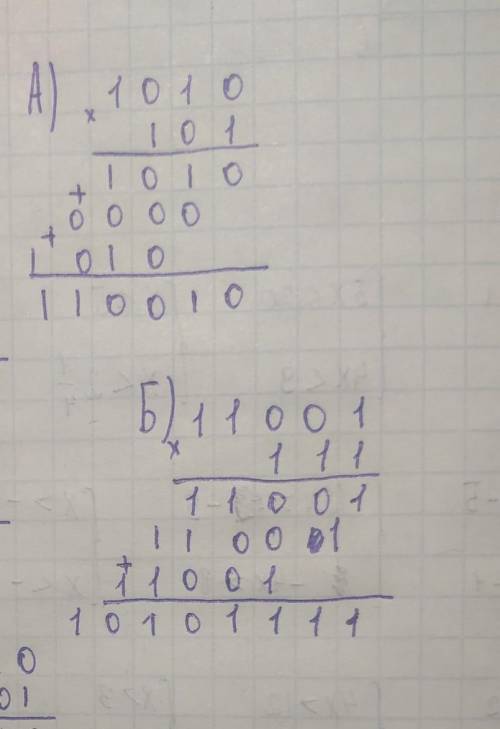 А) 1 0 1 0
× 1 0 1
1 0 1 0
+ 0 0 0 0
+ 1 0 1 0
1 1 0 0 1 0
Б) 1 1 0 0 1
× 1 1 1
1 1 0 0 1
1 1 0 0 1
+ 1 1 0 0 1
1 0 1 0 1 1 1 1
0
01